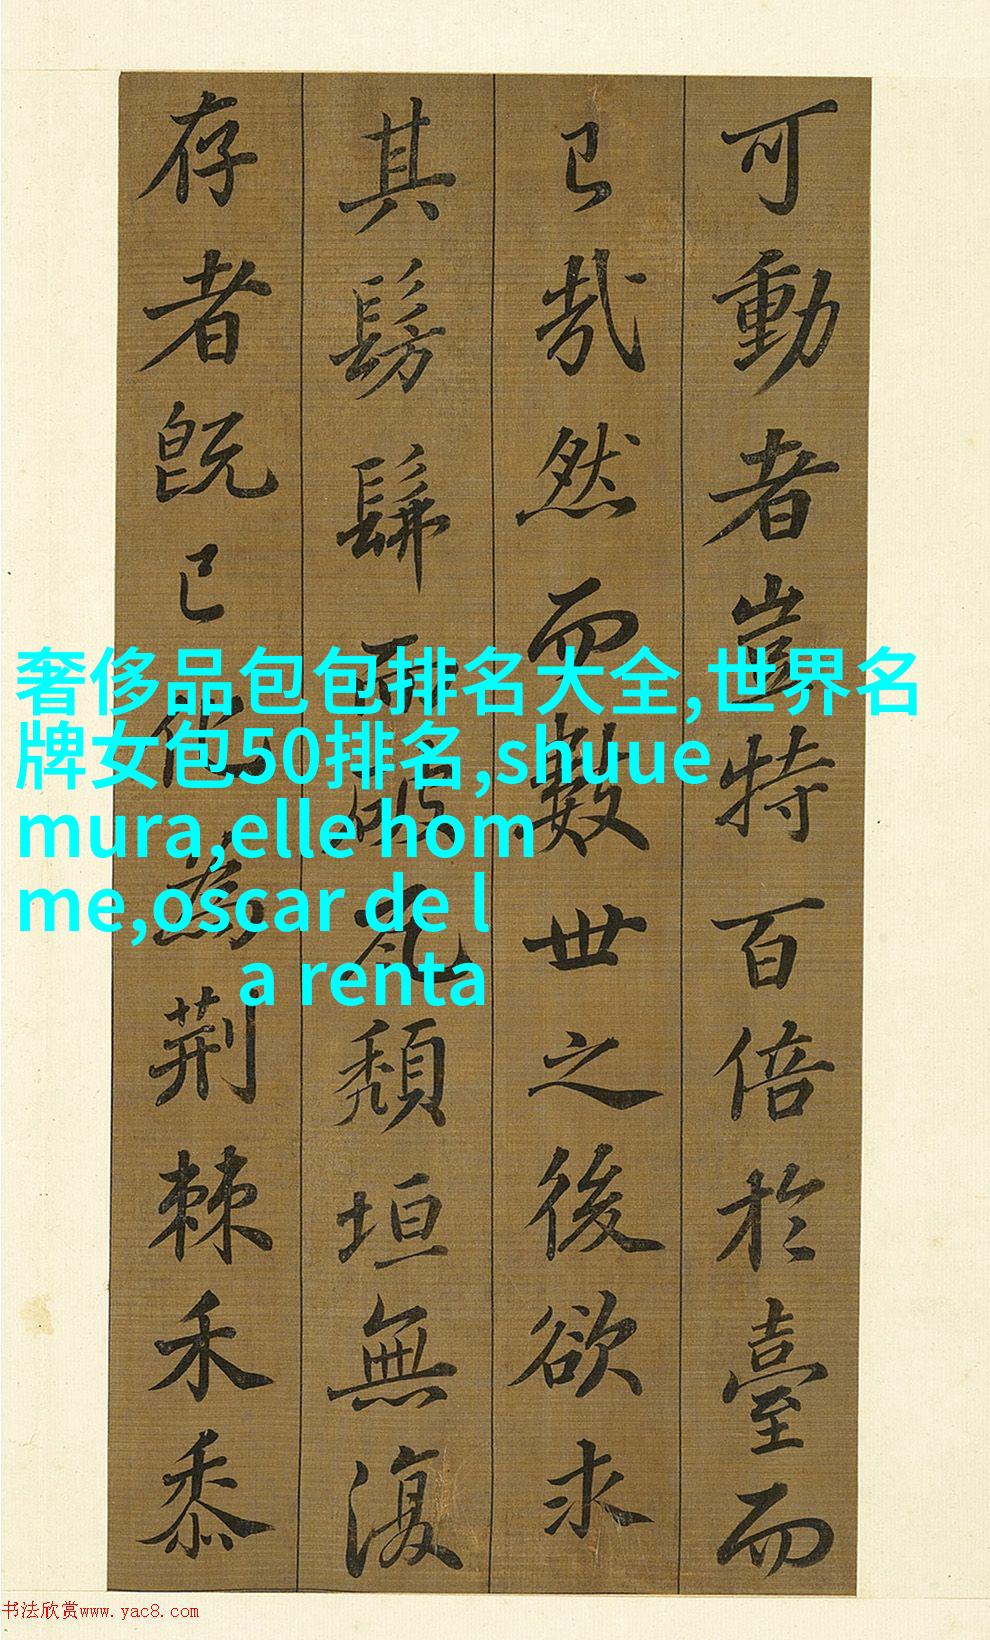 可動者豈特百倍於臺而
已哉然而數世之後欲求
其髣髴而破瓦頹垣無復
存者既已化為荆棘禾黍
奢侈品包包排名大全,世界名
牌女包50排名,shuue
mura,elle hom
me,oscar de l
a renta
书法欣赏www.yac8.com